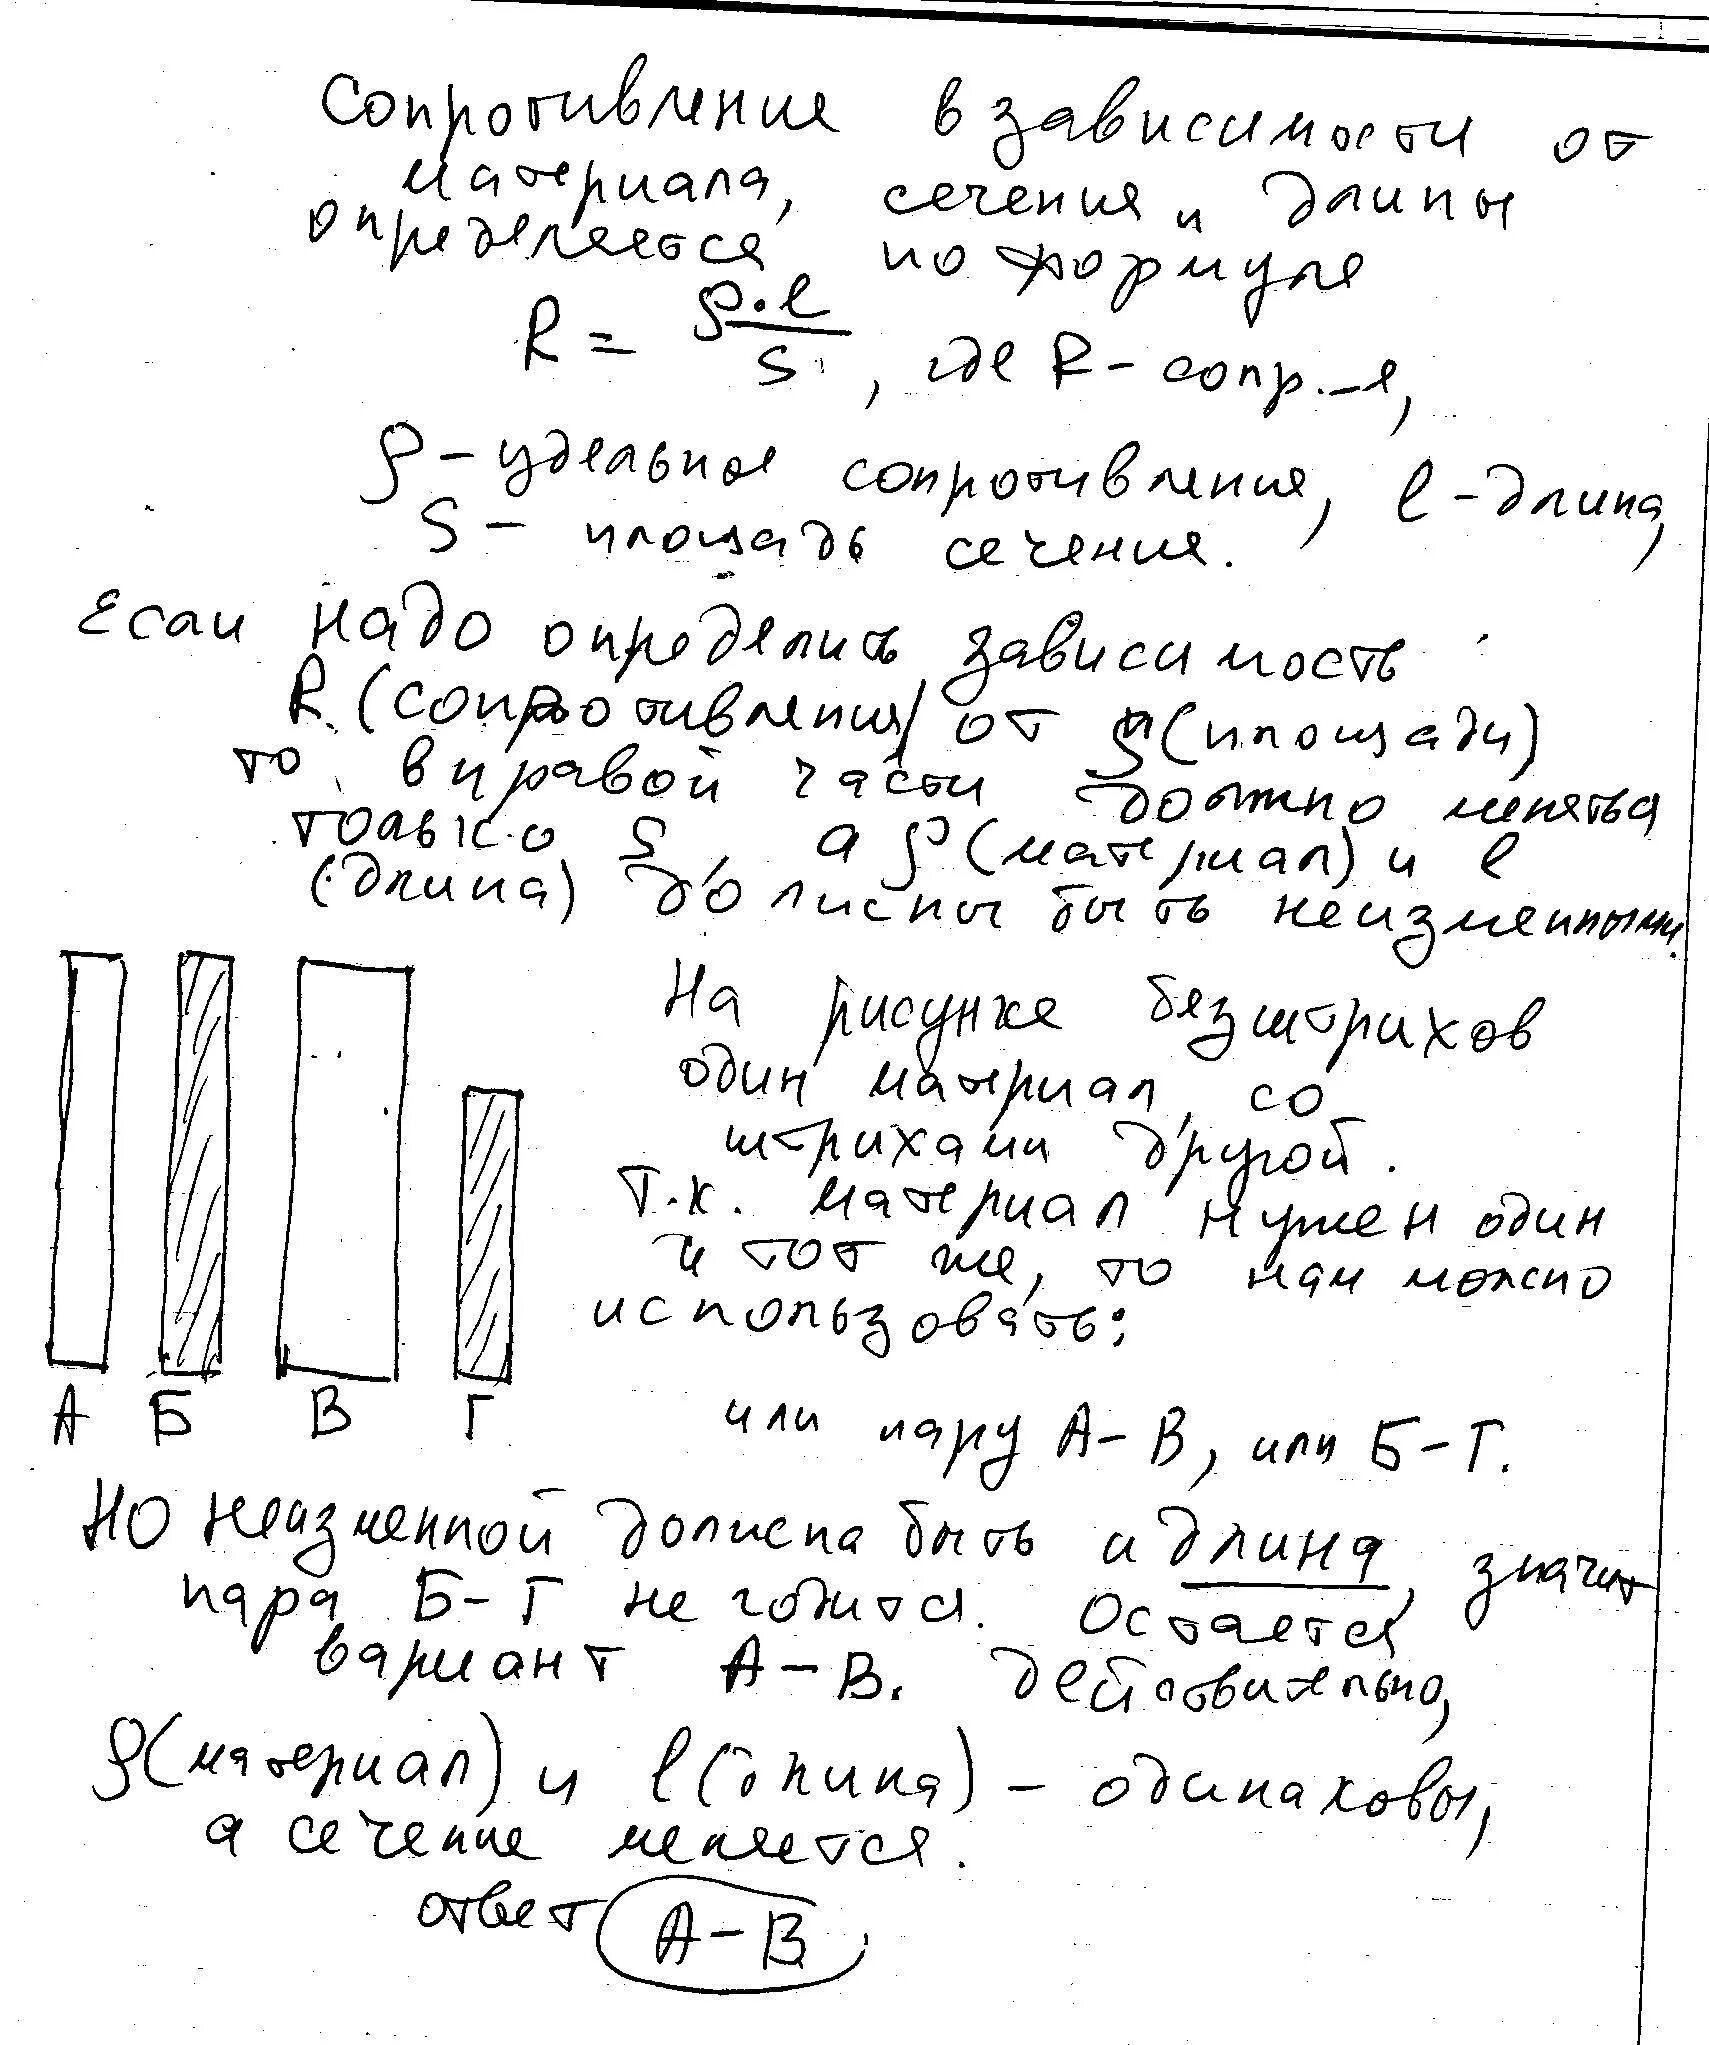 Сопротивление в зависимости от
материала, сечения и длины
определяется по формуле
R = ρ·l/S, где R - сопр.-е,
ρ - удельное сопротивление, l - длина,
S - площадь сечения.
Если надо определить зависимость
R (сопротивления) от S (площади)
то в правой части должно меняться
только S, а ρ (материал) и l
(длина) должны быть неизменными.
На рисунке без штрихов
один материал, со
штрихами другой.
Т.к. материал нужен один
и тот же, то нам можно
использовать:
или пару А-В, или Б-Г.
А Б В Г
Но неизменной должна быть и длина, значит
пара Б-Г не годится. Остается
вариант А-В. Действительно,
ρ (материал) и l (длина) - одинаковы,
а сечение меняется.
ответ А-В